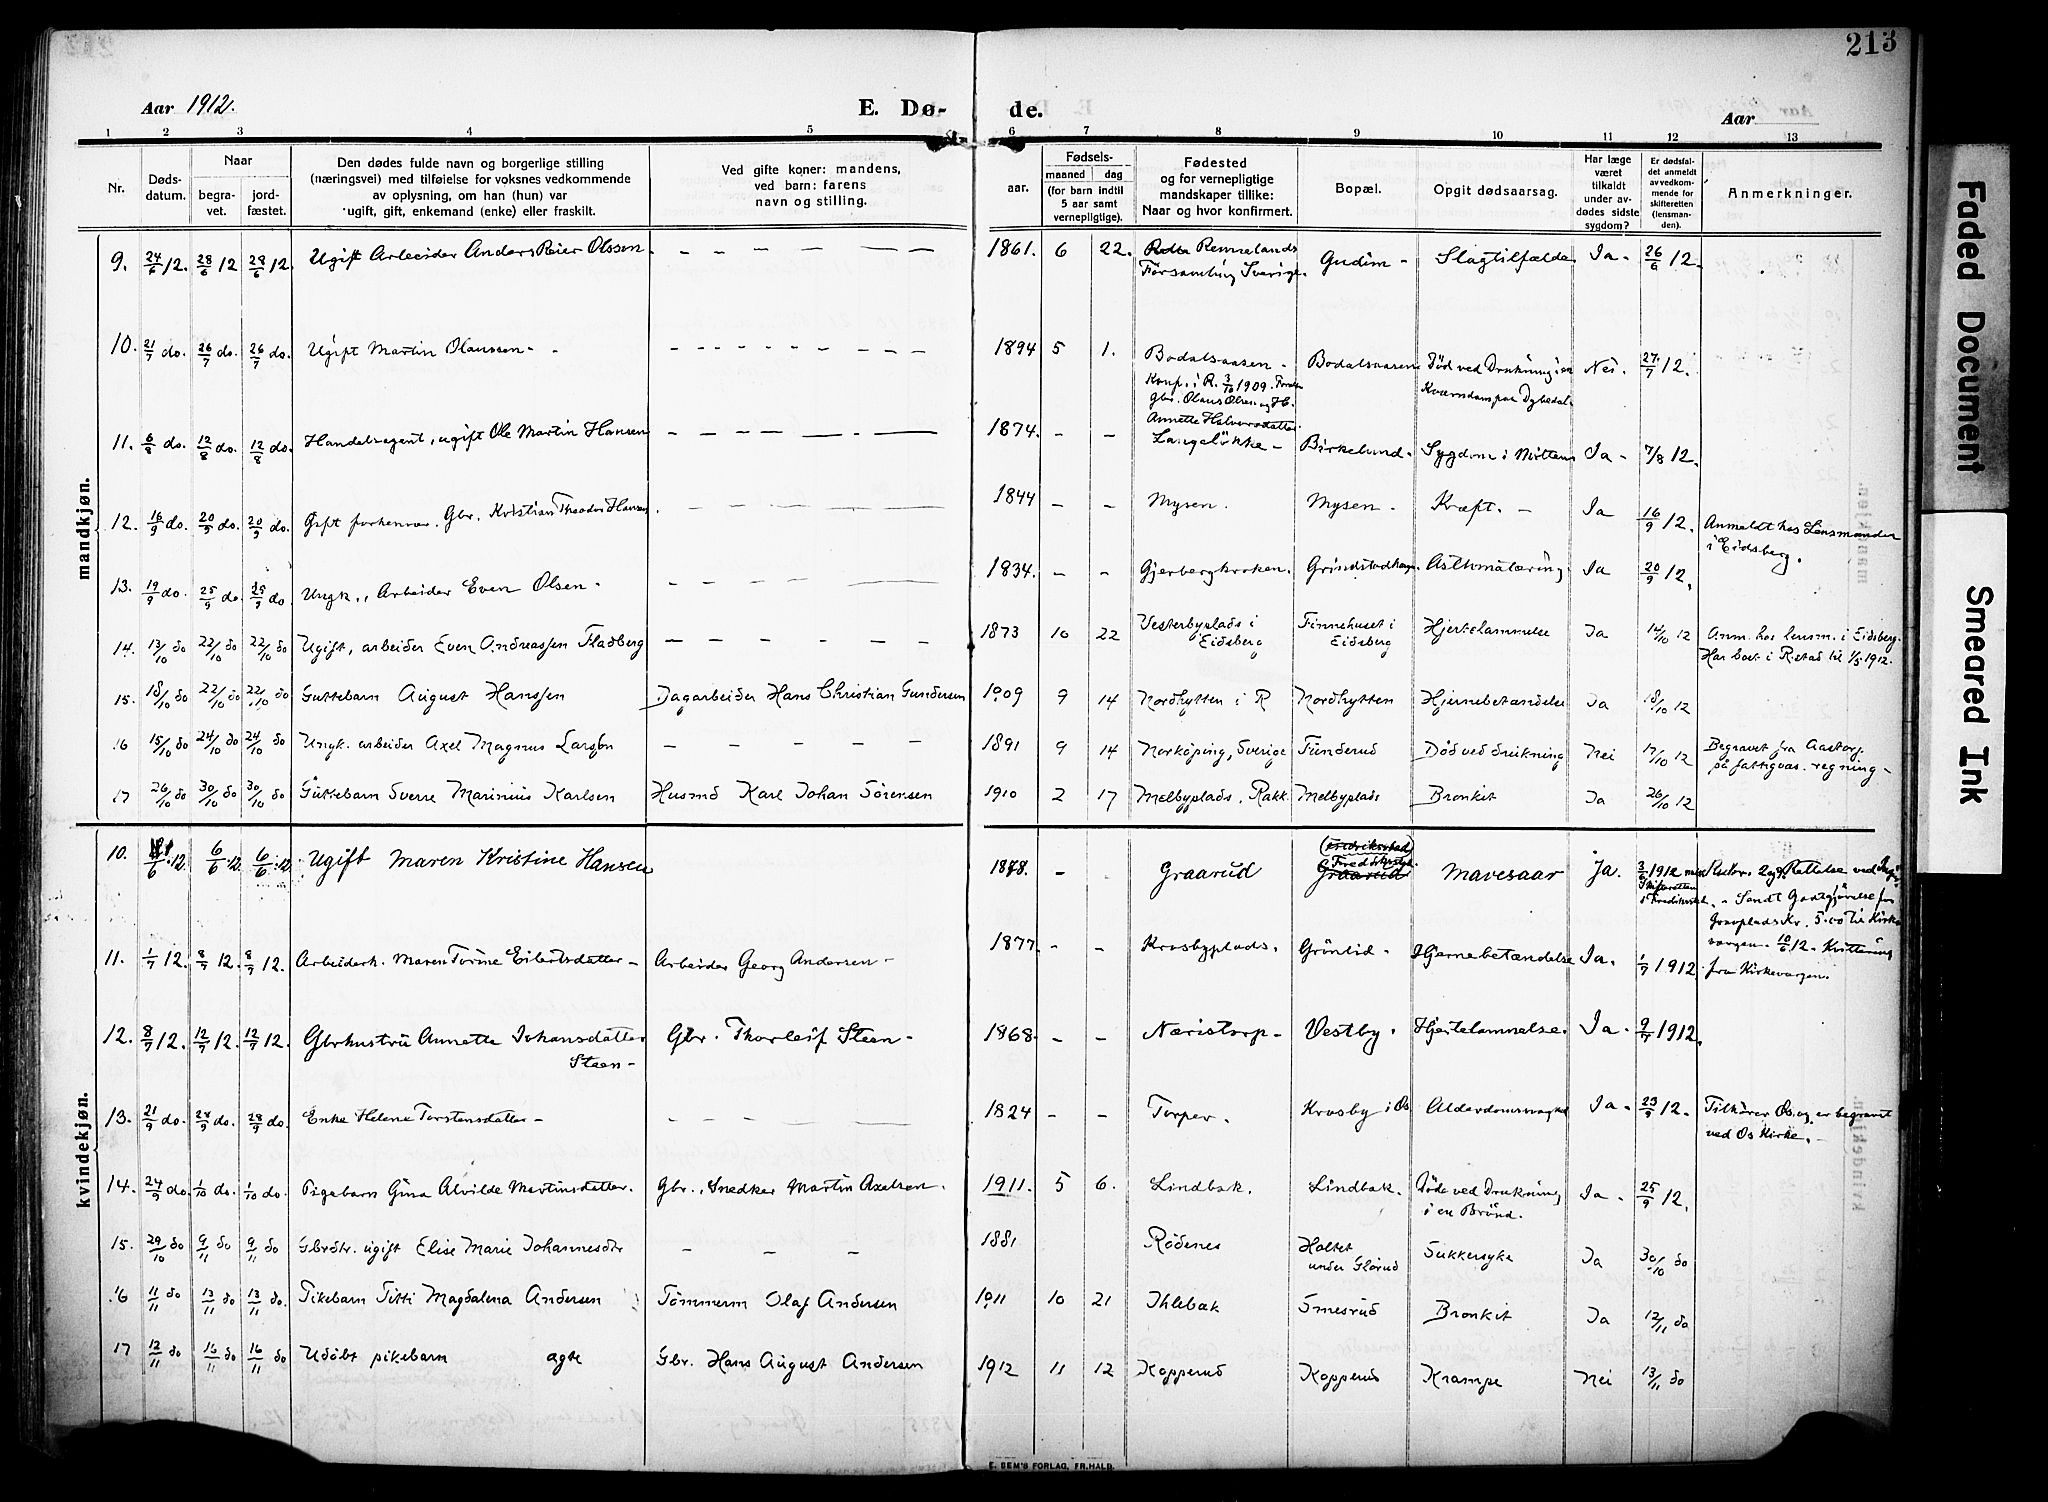 213
Aar 1912.
E. Dø-
de.
Aar
1 2 3 4 5 6 7 8 9 10 11 12 13
Nr.
Døds-
datum.
Naar
begra-
vet.
jord-
fæstet.
Den dødes fulde navn og borgerlige stilling
(næringsvei) med tilføielse for voksnes vedkommende
av oplysning, om han (hun) var
ugift, gift, enkemand (enke) eller fraskilt.
Ved gifte koner: mandens,
ved barn: farens
navn og stilling.
aar.
Fødsels-
maaned dag
(for barn indtil
5 aar samt
vernepligtige).
Fødested
og for vernepligtige
mandskaper tillike:
Naar og hvor konfirmert.
Bopæl.
Opgit dødsaarsag.
Har læge
været
tilkaldt
under av-
dødes sidste
sygdom?
Er dødsfal-
det anmeldt
av vedkom-
mende for
skifteretten
(lensman-
den).
Anmerkninger.
mandkjøn.
9. 24/6 12. 28/6 12 28/6 12. Ugift Arbeider Anders Reier Olssen. 1861. 6 22. Rennelands
Församling Sverige. Gudim - Slagtilfælde Ja - 26/6 12.
10. 21/7 do. 26/7 do. 26/7 do. Ugift Martin Olaussen - 1894 5 1. Bodalsaasen - Bodalsaasen Död ved Drukning i en Nei. 27/7 12.
Konf. i R. 3/10 1909. Foreldre
Gbr. Olaus Olsen og H. Kværndam paa Dybedal.
Annette Halvorsdatter.
11. 6/8 do. 12/8 do. 12/8 do. Handelsagent, ugift Ole Martin Hansen 1874. - - Langelökke - Birkelund. Sygdom i Milten Ja - 7/8 12.
12. 16/9 do. 20/9 do. 20/9 do. Gift forhenvær. Gbr. Kristian Theodor Hansen. 1844 - - Mysen. Mysen. Kræft. - Ja 16/9 12. Anmeldt hos Lensmanden
i Eidsberg.
13. 19/9 do. 25/9 do. 25/9 do. Ungk., Arbeider Even Olsen - 1834. - - Gjerbergkroken. Grindstadhagen Asthmatæring. Ja 20/9 12.
14. 13/10 do 22/10 do 22/10 do Ugift, arbeider Even Andreassen Fladberg 1873 10 22 Vesterbyplads i
Eidsberg Finnehuset i
Eidsberg Hjertelammelse Ja 14/10 12 Anm. hos lensm. i Eidsberg.
Har boet i R.stad til 1/5 1912.
15. 18/10 do 22/10 do 22/10 do Guttebarn August Hanssen Dagarbeider Hans Christian Gundersen 1909 9 14 Nordhytten i R Nordhytten Hjernebetændelse Ja 18/10 12
16 15/10 do 24/10 do 24/10 do Ungk. arbeider Axel Magnus Larsøn 1891 9 14 Norköping, Sverige Tunderud Död ved drukning Nei 17/10 12 Begravet fra Aastorp
på fattigvæs. regning -
17 26/10 do 30/10 do 30/10 do Guttebarn Sverre Marinius Karlsen Husmd Karl Johan Sörensen 1910 2 17 Melbyplads, Rakk. Melbyplads Bronkit Ja 26/10 12
kvindekjøn.
10. 1/6 12. 6/6 12. 6/6 12. Ugift Maren Kristine Hansen 1888. - - Graarud (Fredrikstad)
Graarud Mavesaar Ja. 3/6 1912
Skifteretten
i Fredrikstad. - Sendt Godtgjörelse for
Gravplads Kr. 5.00 til Kirke-
vergen. 10/6 12 - Kvittering
fra Kirkevergen.
11. 1/7 12. 8/7 12. 8/7 12. Arbeiderk. Maren Torine Eilertsdatter - Arbeider Georg Andersen - 1877 - - Krosbyplads. Grönlid - Hjernebetændelse Ja. 1/7 1912
12. 8/7 12. 12/7 12. 12/7 12. Gbrhustru Annette Johansdatter
Steen - Gbr. Thorleif Steen - 1868. - - Næristorp - Vestby. Hjertelammelse. Ja - 9/7 1912.
13. 21/9 do. 28/9 do. 28/9 do. Enke Helene Torstensdatter - 1824 - - Torper. Krosby i Os Alderdomssvaghed Ja - 23/9 12. Tilhörer Os og er begravet
ved Os Kirke. -
14. 24/9 do. 1/10 do. 1/10 do. Pigebarn Gina Alvilde Martinsdatter. Gbr., Snedker Martin Axelsen. 1911. 5 6. Lindbak. Lindbak. Döde ved Drukning
i en Brönd. Ja - 25/9 12.
15. 29/10 do 9/11 do 9/11 do Gbrdtr. ugift Elise Marie Johannesdtr 1881 Rödenes Holtet
under Glörud Sukkersyke Ja 30/10 do
16 11/11 do 13/11 do 13/11 do. Pikebarn Titti Magdalena Andersen Tömmerm Olaf Andersen 1911 10 21 Ihlebak Smesrud Bronkit Ja 12/11 do
17 12/11 do 16/11 do 16/11 do Udöbt pikebarn ægte Gbr. Hans August Andersen 1912 11 12 Kopperud Kopperud Krampe Nei 13/11 do
E. SEM'S FORLAG, FR.HALD.
Faded Document
Smeared Ink